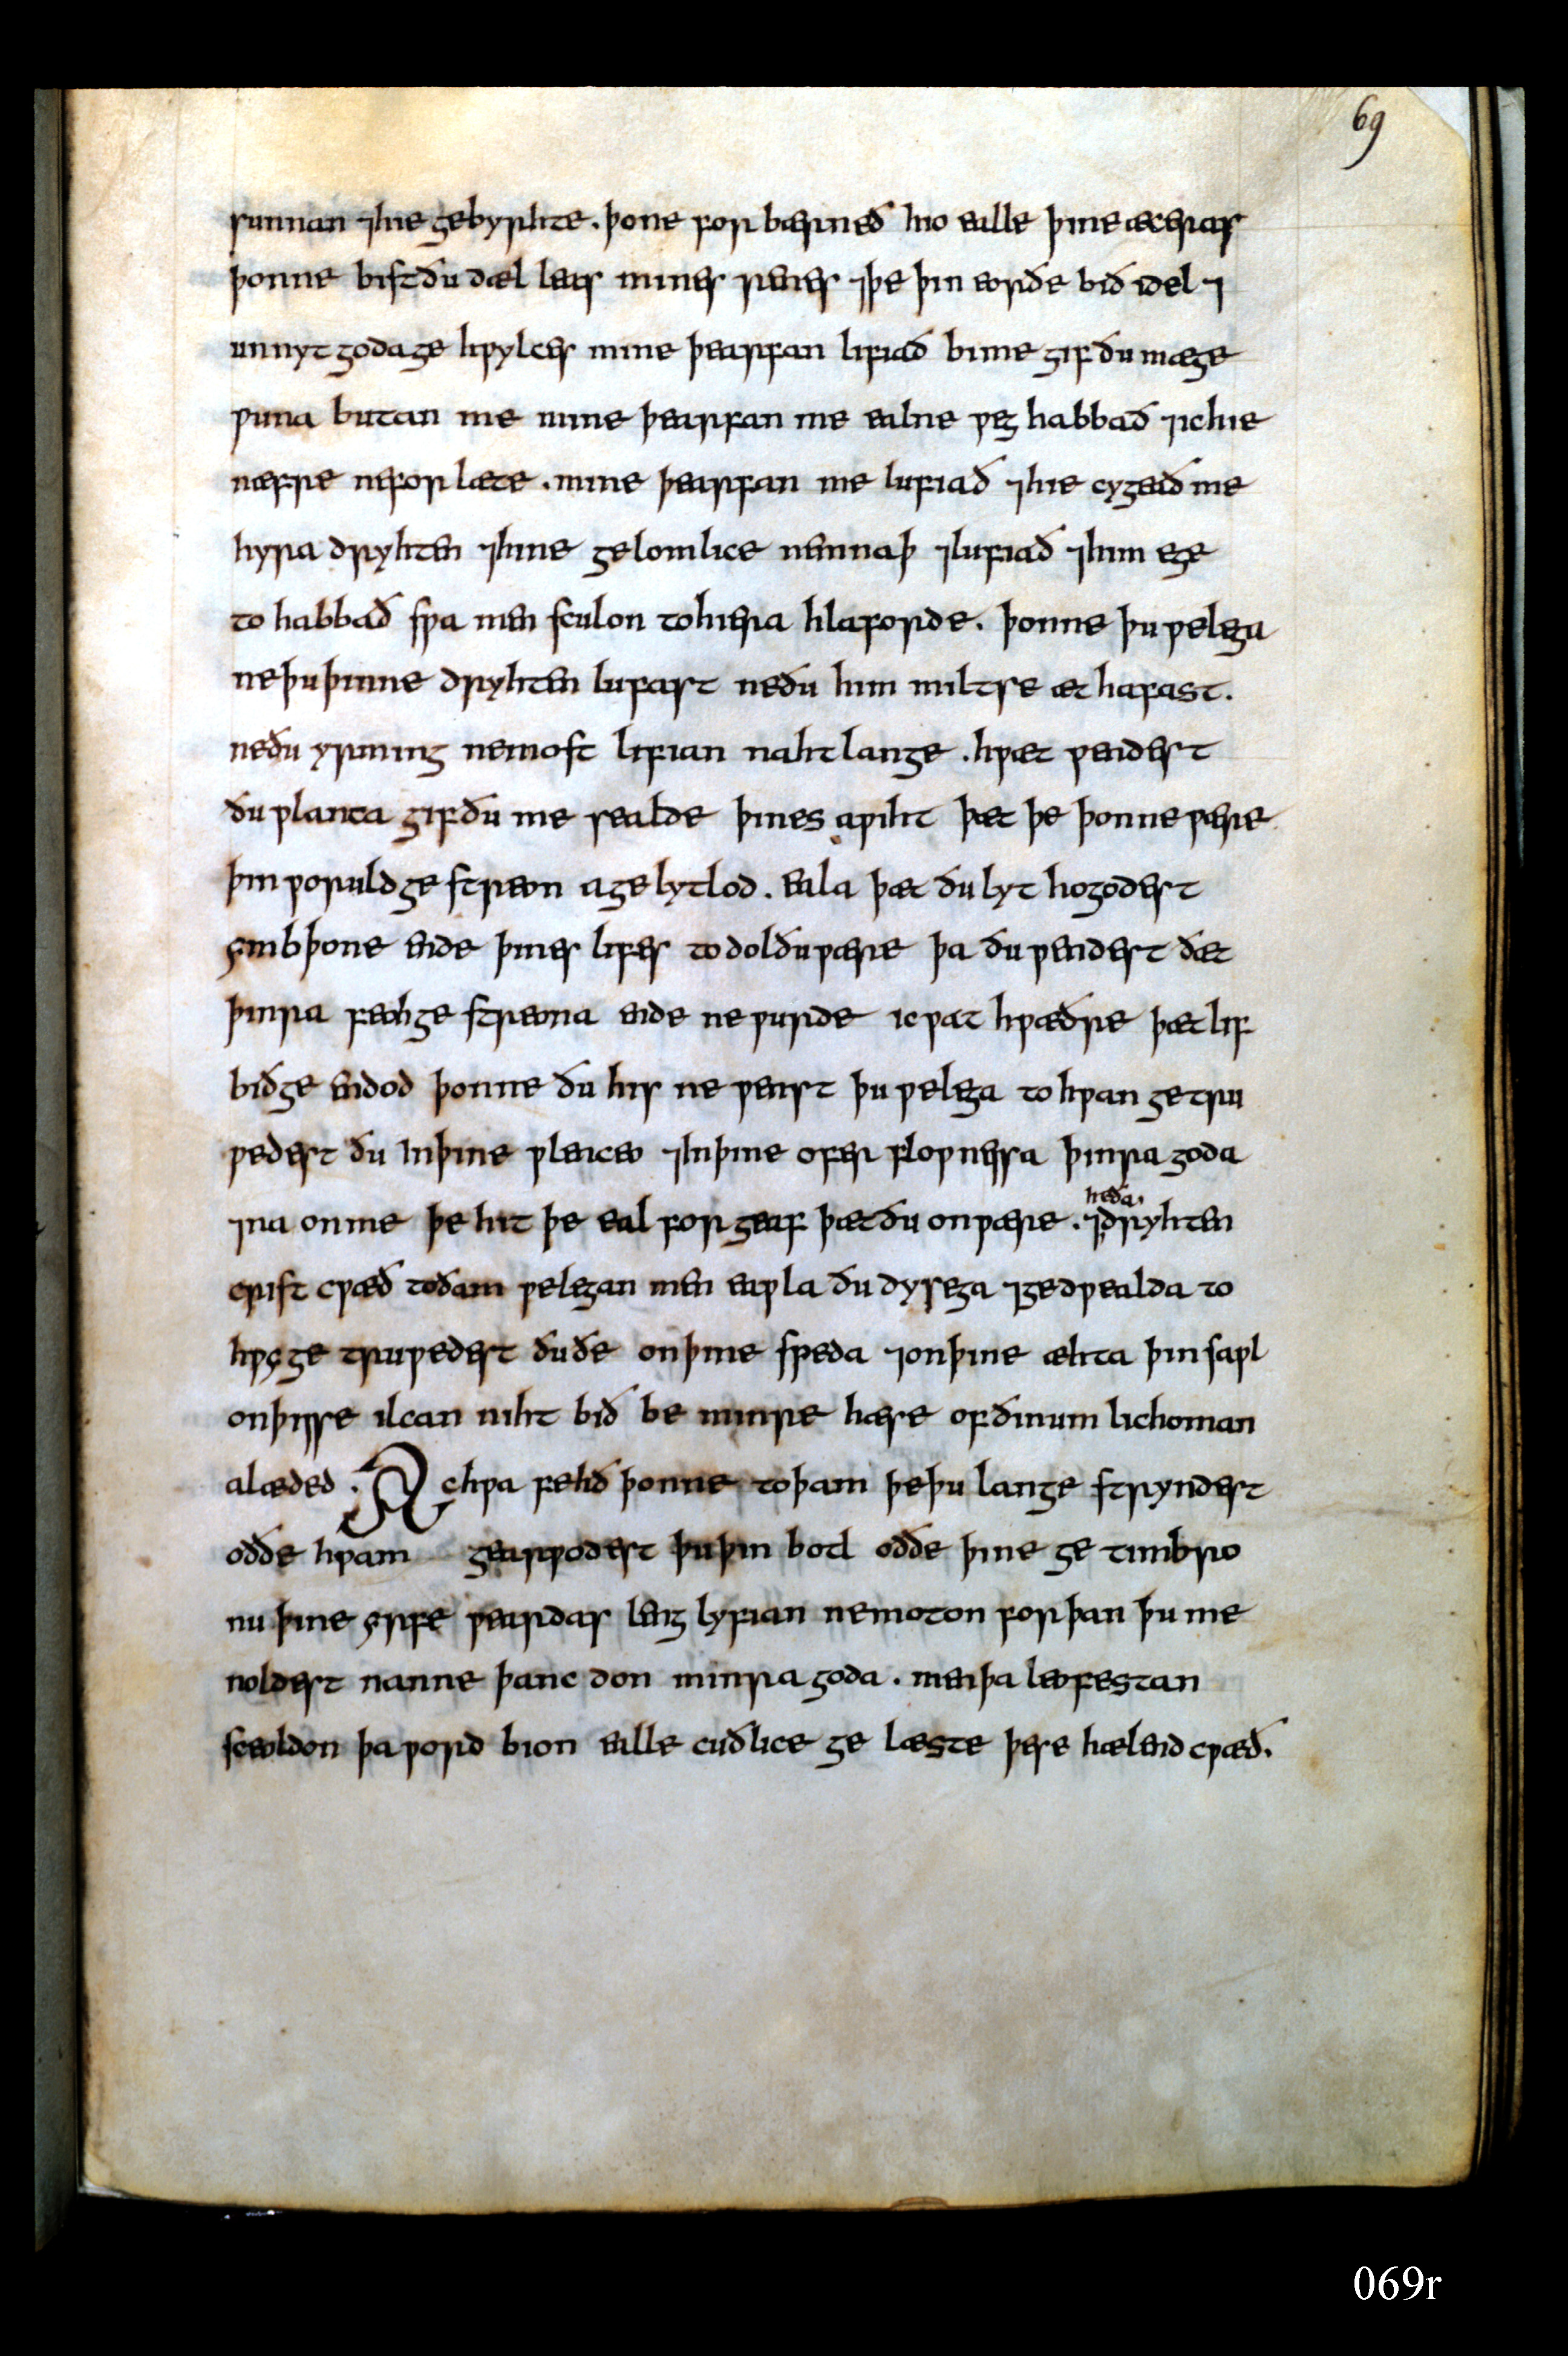 69
sunnan ⁊hie gebyrhte. þone forbærneð hio ealle þine æceras
þonne bistðu dæl leas mines renes ⁊þe þin eorðe bið idel ⁊
unnyt godage hƿylces mine þearfan lifiað bime gif ðu mæge
ƿuna butan me mine þearfan me ealne ƿeg habbað ⁊ichie
næfre neforlæte. mine þearfan me lufiað ⁊hie cygeað me
hyra dryhten ⁊hine gelomlice nemnaþ ⁊lufiað ⁊him ege
to habbað sƿa men sculon tohiera hlaforde. þonne þuƿelega
neþuþinne dryhten lufast neðu him miltse æt hafast.
neðu yrming nemost lifian nahtlange. hƿæt ƿendest
ðuƿlanca gifðu me sealde þines aƿiht þæt þe þonneƿære
þinƿoruldgestreon agelytlod. eala þæt ðulyt hogodest
ymbþone ende þines lifes todolðuƿære þa ðuƿendest ðæt
þinra feohgestreona ende neƿurde icƿat hƿæðre þæt lif
biðge endod þonne ðu his ne ƿenst þuƿelega tohƿan getru
ƿedest ðu inþine ƿlencea ⁊inþine oferfloƿnessa þinragoda
⁊na onme þe hit þe eal forgeaf þætðu onƿære. ⁊dryhten
heða.
crist cƿæð toðam ƿelegan men eaƿla ðu dysega ⁊gedƿealda to
hƿy ge truƿedest ðuðe onþine speda ⁊onþine æhta þinsaƿl
onþisse ilcan niht bið be minre hæse ofðinum lichoman
alæded. Ac hƿa fehð þonne toþam þeþu lange stryndest
oððe hƿam gearƿodest þuþin botl oððe þine ge timbro
nu þine yrfe ƿeardas leng lyfian nemoton forþan þu me
noldest nanne þanc don minragoda. menþa leofestan
sceoldon þaƿord bion ealle cuðlice ge læste þese hælend cƿæð.
069r